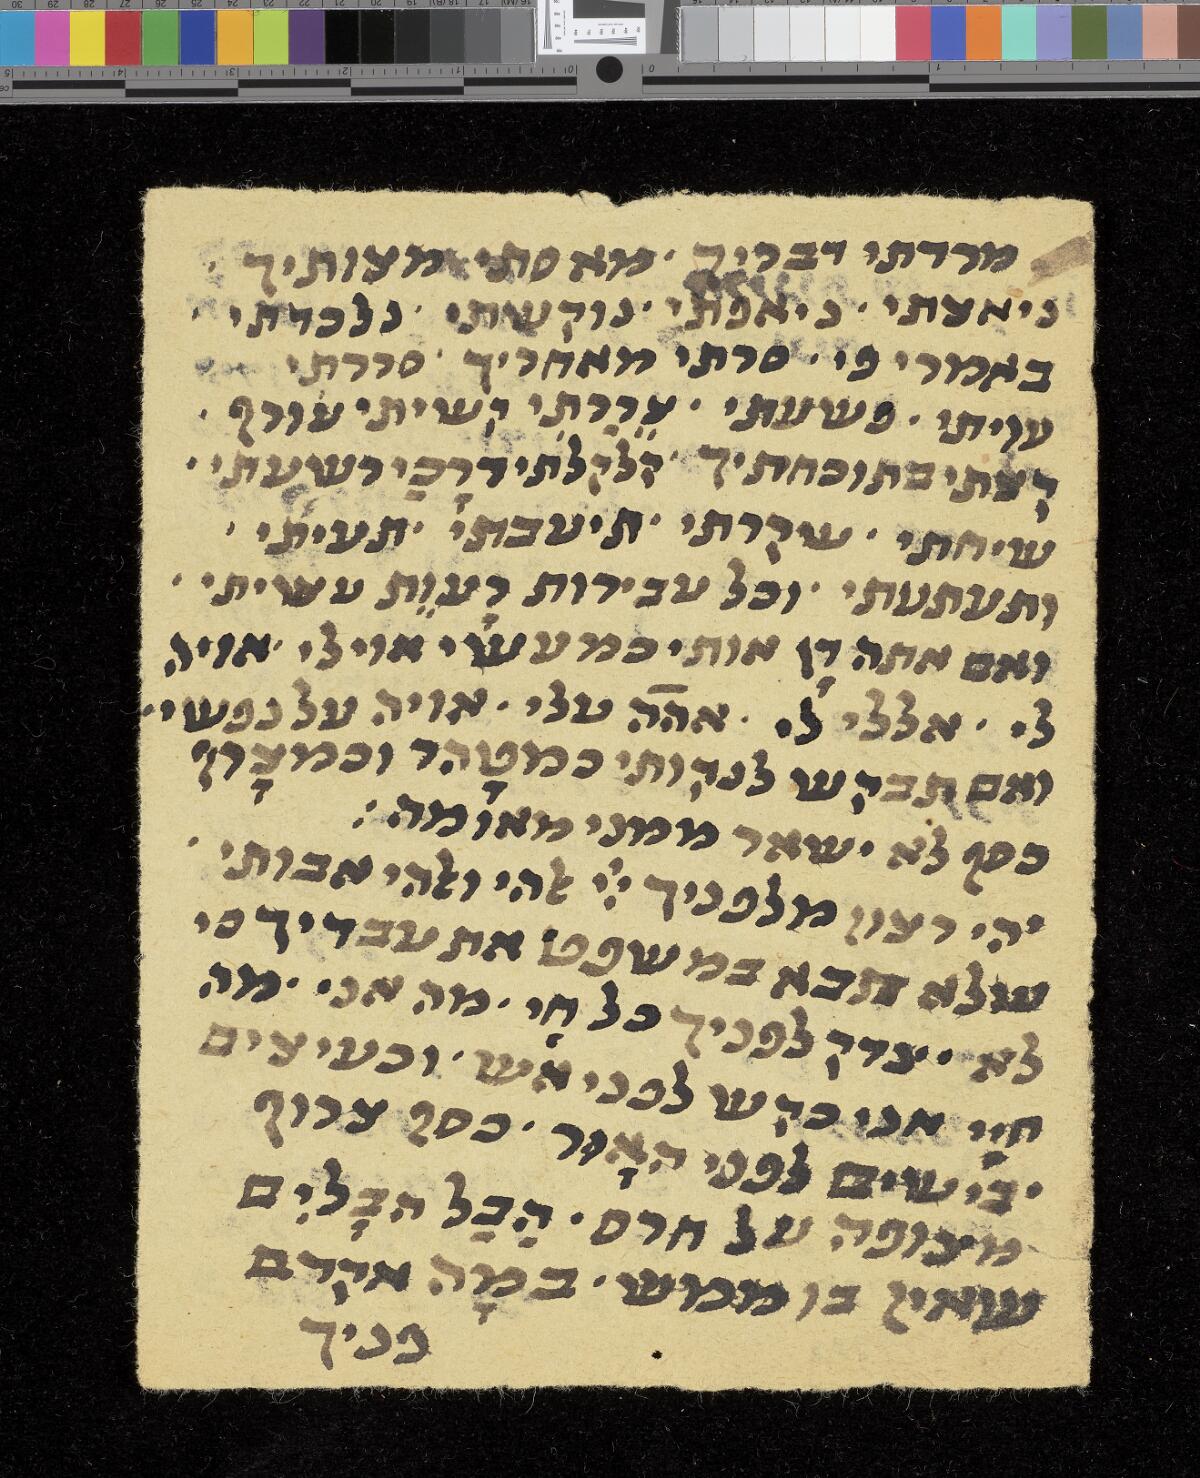 מרדתי דבריך · מאסתי מצותיך ·
ניאצתי · ניאפתי · נוקשתי · נלכדתי ·
באמרי פי · סרתי מאחריך · סררתי
עויתי · פשעתי · צררתי קשיתי עורף ·
קצתי בתוכחתיך · קלקלתי דרכי רשעתי ·
שיחתי · שקרתי · תיעבתי · תעיתי ·
ותעתעתי · וכל עבירות רעות עשיתי ·
ואם אתה דן אותי כמעשי אוי לי · אויה
לי · אללי לי · אהה עלי · אויה על נפשי ·
ואם תבקש לנקותי כמטהר וכמצרף
כסף לא ישאר ממני מאומה :
יהי רצון מלפניך יי ﭏהי וﭏהי אבותי ·
שלא תבא במשפט את עבדיך כי
לא ייצדק לפניך כל חי · מה אני · מה
חיי אני כקש לפני אש · וכעיצים
יבישים לפני האור · כסף צרוף
מצופה על חרס · הבל הבלים
שאין בו ממש · במה אקדם
פניך